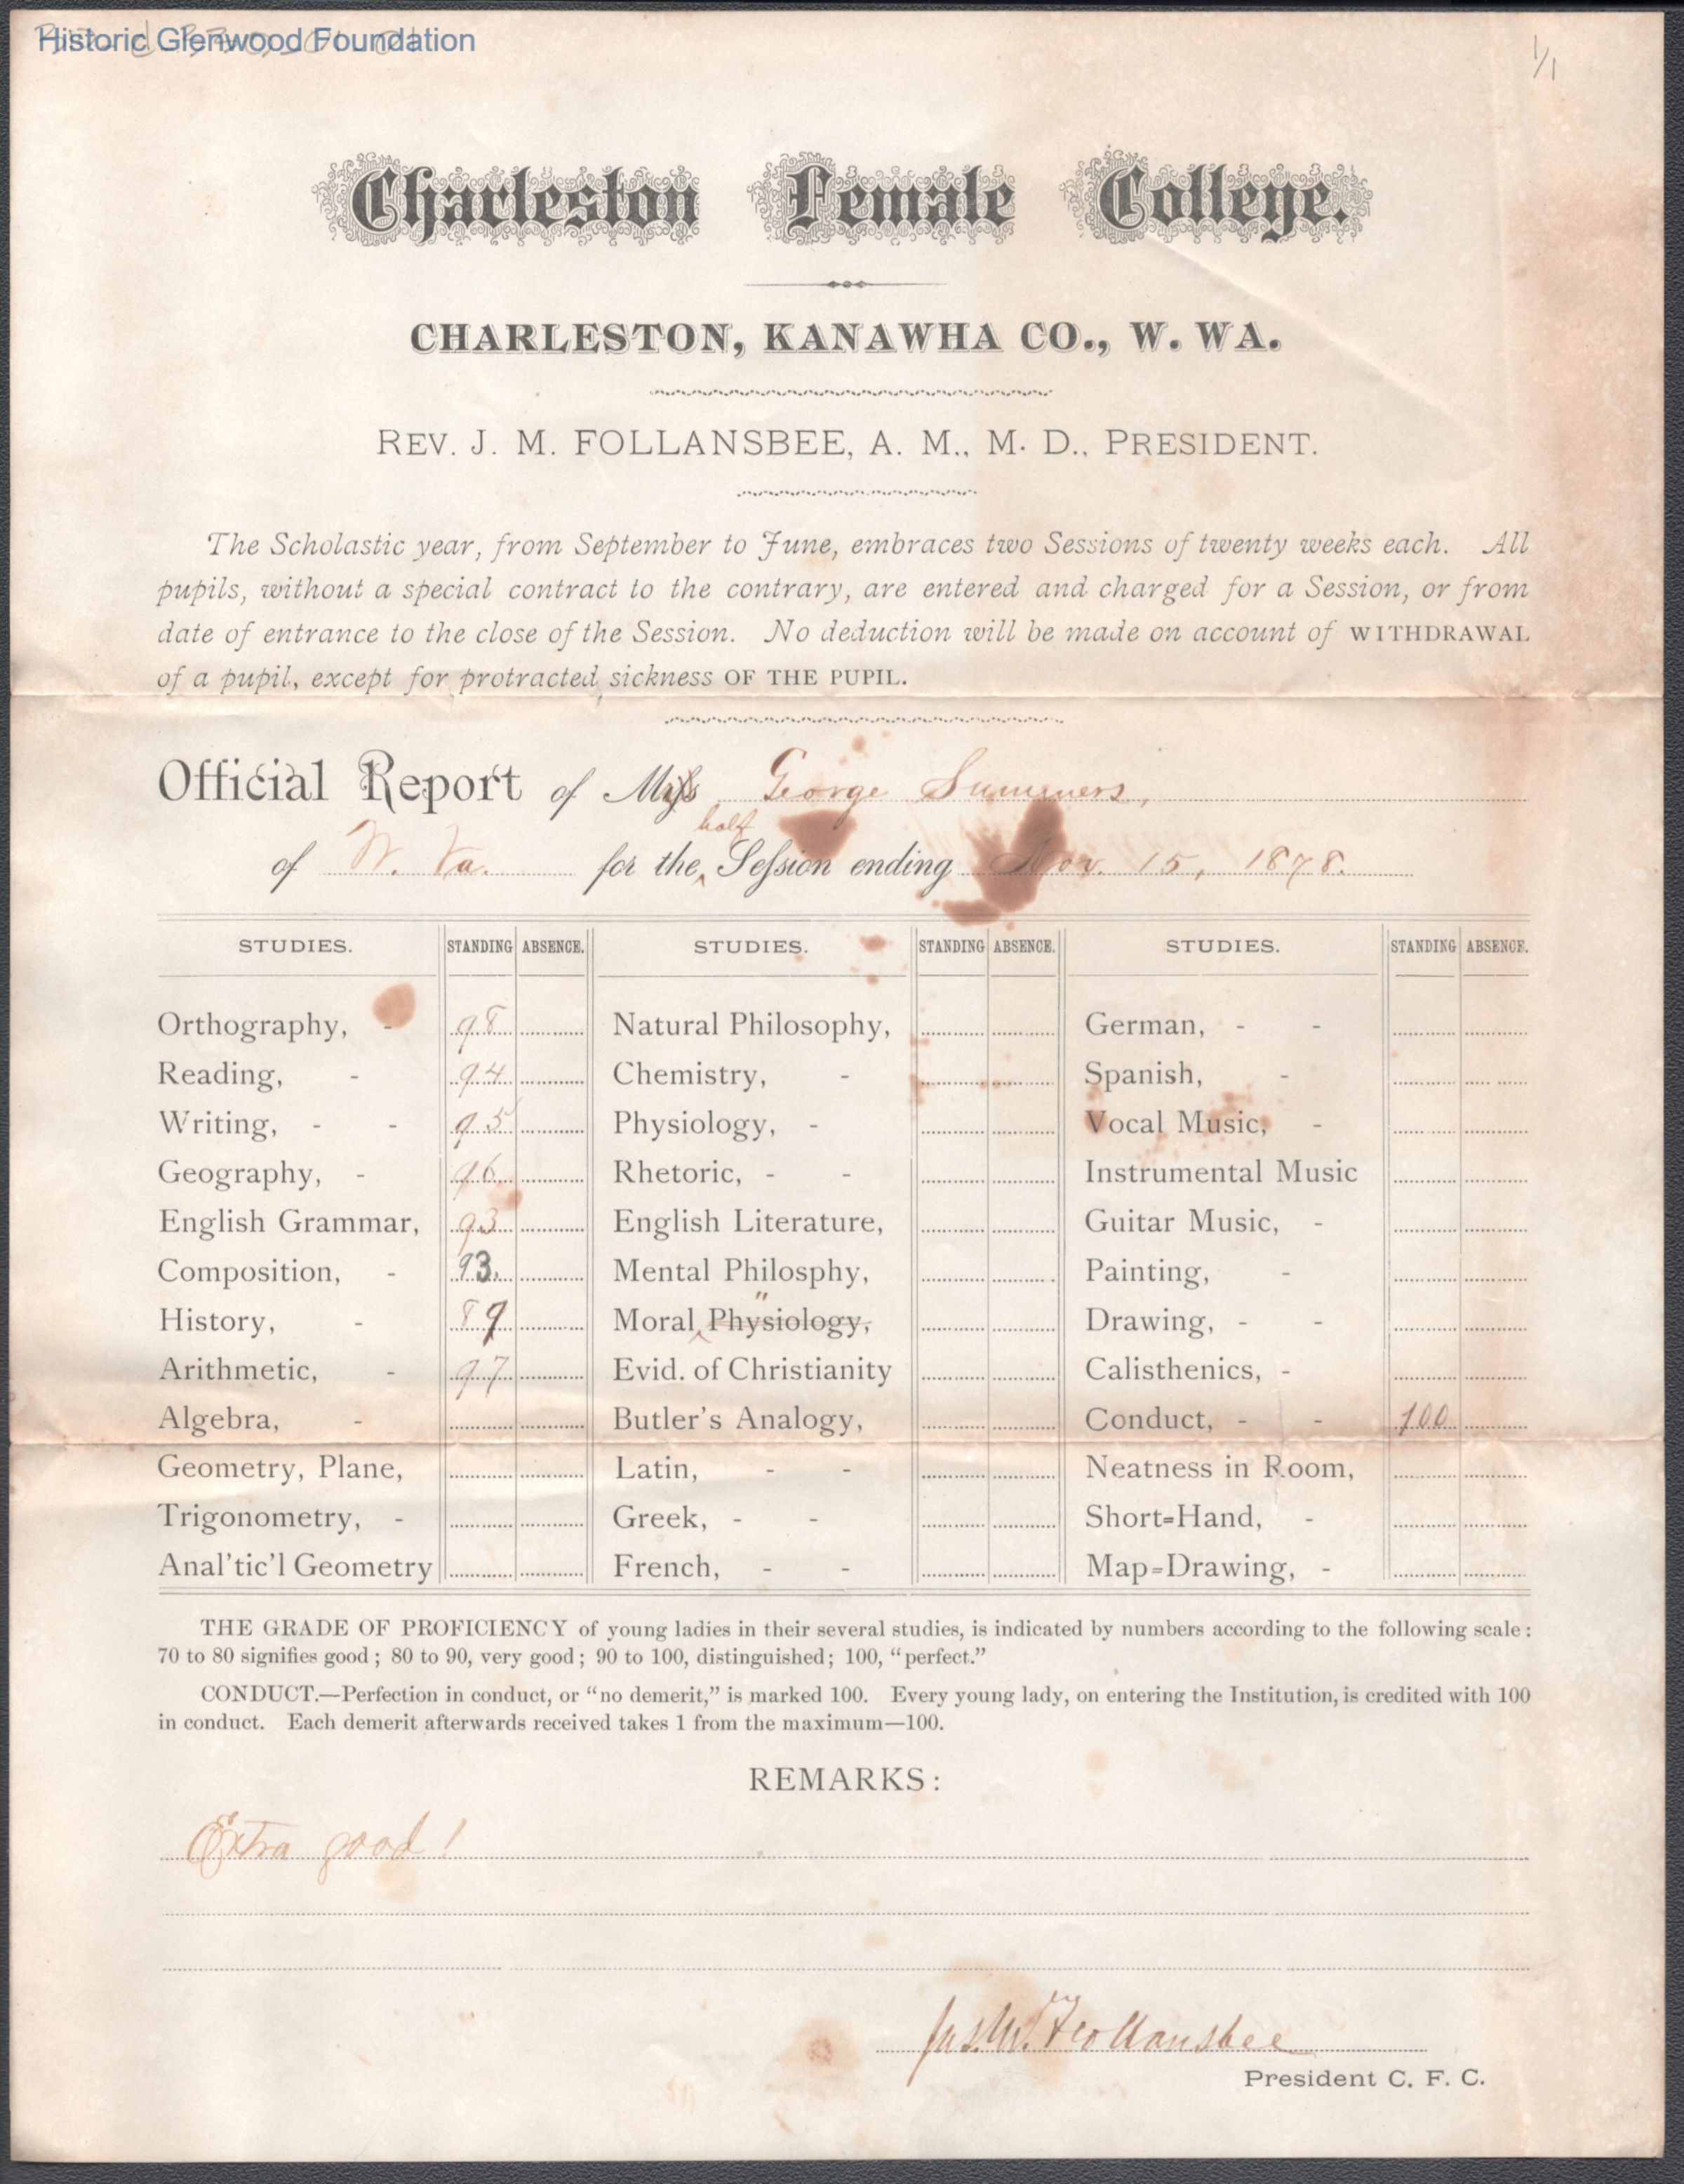 Historic Glenwood Foundation
1/1
Charleston Female College.
CHARLESTON, KANAWHA CO., W. WA.
REV. J. M. FOLLANSBEE, A. M., M. D., PRESIDENT.
The Scholastic year, from September to June, embraces two Sessions of twenty weeks each. All
pupils, without a special contract to the contrary, are entered and charged for a Session, or from
date of entrance to the close of the Session. No deduction will be made on account of WITHDRAWAL
of a pupil, except for protracted sickness OF THE PUPIL.
Official Report of Miss George Summers,
half
of W. Va. for the ^ Session ending Nov. 15, 1878.
STUDIES. STANDING ABSENCE. STUDIES. STANDING ABSENCE. STUDIES. STANDING ABSENCE.
Orthography, - 98 Natural Philosophy, German, - -
Reading, - 94 Chemistry, - Spanish, -
Writing, - - 95 Physiology, - Vocal Music, -
Geography, - 96 Rhetoric, - - Instrumental Music
English Grammar, 93 English Literature, Guitar Music, -
Composition, - 93. Mental Philosphy, Painting, -
History, - 89 Moral ^ " Physiology, Drawing, - -
Arithmetic, - 97 Evid. of Christianity Calisthenics, -
Algebra, - Butler's Analogy, Conduct, - - 100
Geometry, Plane, Latin, - - Neatness in Room,
Trigonometry, - Greek, - - Short=Hand, -
Anal'tic'l Geometry French, - - Map=Drawing, -
THE GRADE OF PROFICIENCY of young ladies in their several studies, is indicated by numbers according to the following scale:
70 to 80 signifies good; 80 to 90, very good; 90 to 100, distinguished; 100, "perfect."
CONDUCT.—Perfection in conduct, or "no demerit," is marked 100. Every young lady, on entering the Institution, is credited with 100
in conduct. Each demerit afterwards received takes 1 from the maximum—100.
REMARKS:
Extra good!
Jas. M. Follansbee
President C. F. C.